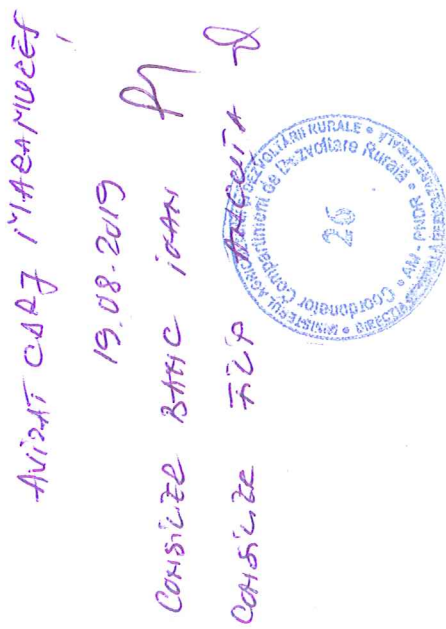 AVIZAT CDRJ MARAMUREȘ
19.08.2019
CONSILIER BANIC IOAN
CONSILIER FILIP ANGELIȚA
MINISTERUL AGRICULTURII ȘI DEZVOLTĂRII RURALE • AM - PNDR •
Coordonator Compartiment de Dezvoltare Rurală
26